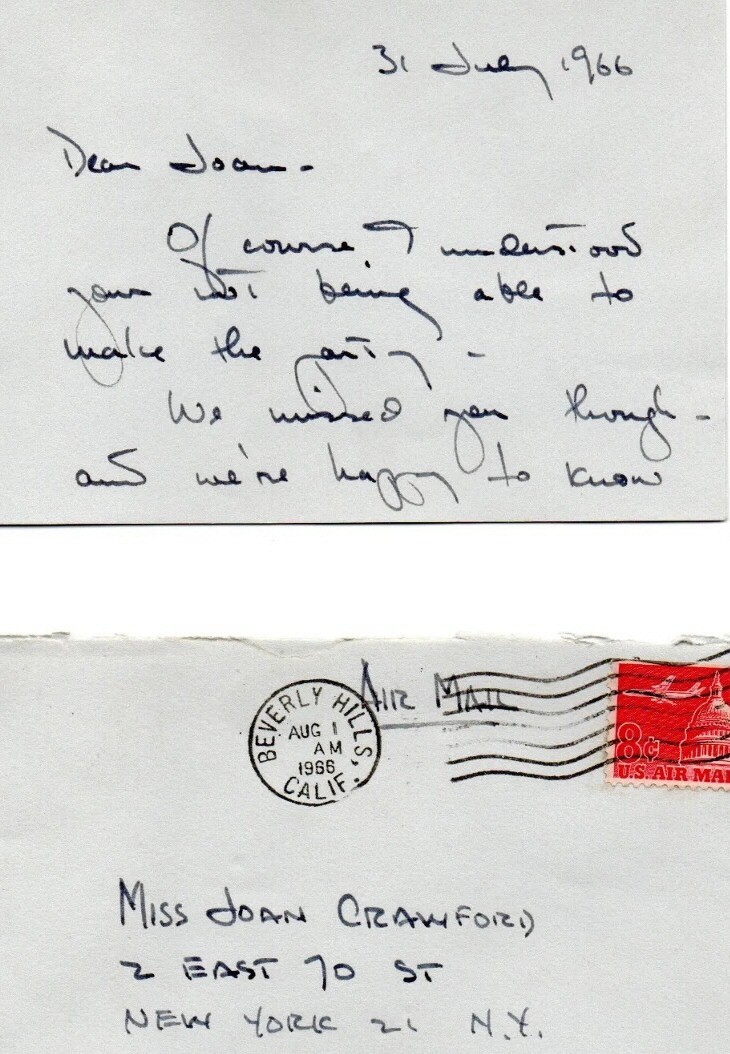 31 July 1966
Dear Joan -
Of course I understood
your not being able to
make the party -
We missed you though -
and we're happy to know
AIR MAIL
BEVERLY HILLS, CALIF.
AUG 1
AM
1966
8¢
U.S. AIR MAI
MISS JOAN CRAWFORD
2 EAST 70 ST
NEW YORK 21 N.Y.